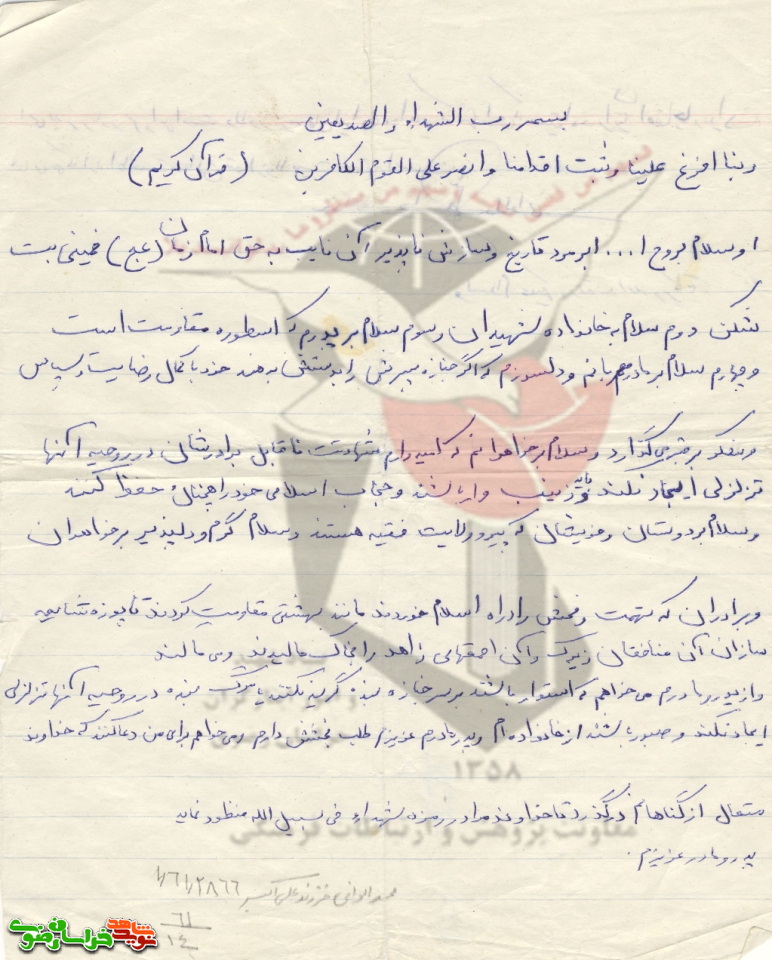 بسم رب الشهداء والصدیقین
ربنا افرغ علینا و ثبت اقدامنا وانصر علی القوم الکافرین (قرآن کریم)
او سلام بروح ا... ابر مرد تاریخ و سازش ناپذیر آن نایب به حق امام زمان (عج) خمینی بت
شکن دوم سلام به خانواده شهیدان وسوم سلام بر پدرم که اسطوره مقاومت است
و چهارم سلام بر مادر مهربانم و دلسوزم که اگر جنازه پسرش را بدستش بدهند خود با کمال رضایت و سپاس
و تفکر بر قبر می گذارد و سلام بر خواهرانم که امیدوارم شهادت ناقابل برادرشان در روحیه آنها
تزلزلی ایجاد نکند و باید زینب وار باشند و حجاب اسلامی خود را همچنان حفظ کنند
وسلام بر دوستان و خویشان که پیرو ولایت فقیه هستند و سلام گرم و دلپذیر بر خواهران
وبرادران که تهمت و فحش را در راه اسلام خوردند مانند بهشتی مقاومت کردند تا پوزه شایعه
سازان آن منافقان زیرک و آن احمقهای زاهد را بخاک مالیدند و می مالند
واز پدر و مادرم می خواهم که استوار باشند بر سر جنازه بنده گریه نکنند یا مرگ بنده در روحیه آنها تزلزلی
ایجاد نکند و صبور باشند از خانواده ام و پدر و مادرم عزیزم طلب بخشش دارم و می خواهم برای من دعا کنند که خداوند
متعال از گناهانم در گذرد تا خداوند مرا در زمره شهداء فی سبیل الله منظور نماید
پدر و مادر عزیزم.
فرزند علی اکبر
۶۱
۱۴
۱۳۵۸
معاونت پژوهش و ارتباطات فرهنگی
نوید شاهد
خراسان رضوی